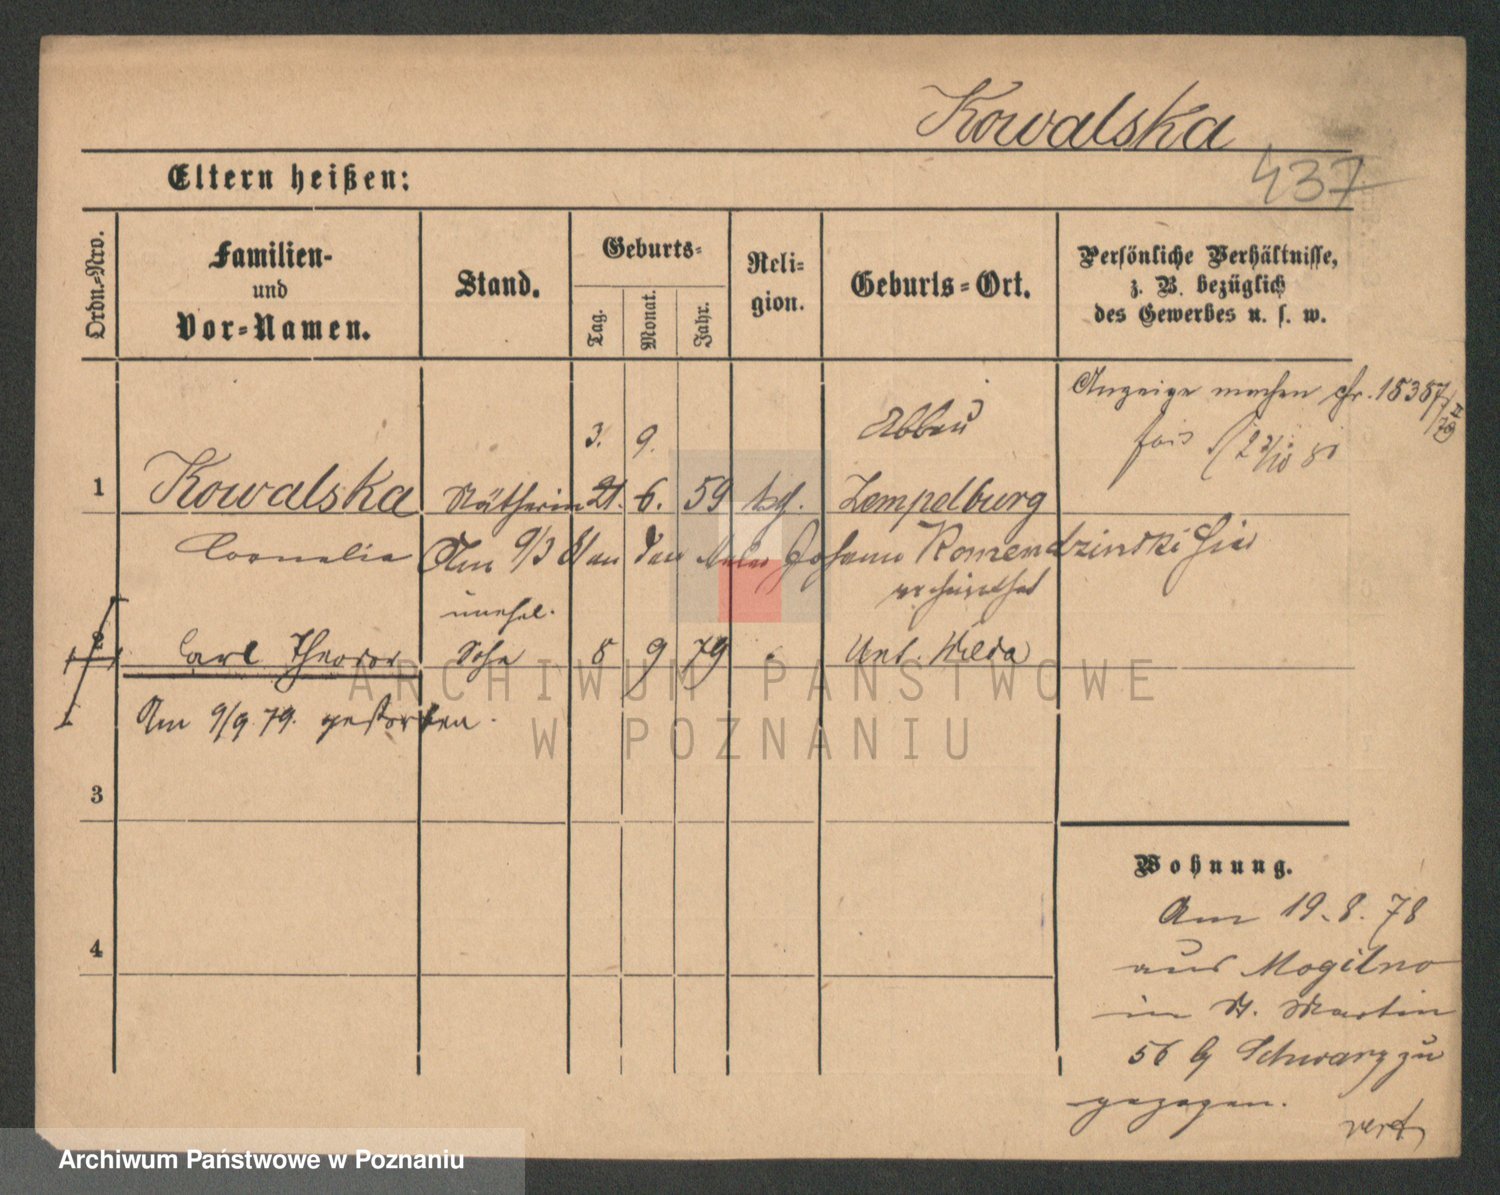 Kowalska
437
Eltern heißen:
Ordn.-Nro.
Familien-
und
Vor-Namen.
Stand.
Geburts-
Tag.
Monat.
Jahr.
Reli-
gion.
Geburts-Ort.
Persönliche Verhältnisse,
z. B. bezüglich
des Gewerbes u. s. w.
Anzeige machen 15387/II/79
3. 9. Abbau
1 Kowalska Nätherin 21. 6. 59 kath. Zempelburg
Cornelia Am 9/3 81 an den Maler Johann Komendzinski hier
verheirathet
unehel.
2 Carl Theodor Sohn 5 9 79 Unt. Wilda
Am 9/9 79. gestorben.
3
4
Wohnung.
Am 19. 8. 78
aus Mogilno
in St. Martin
56 b/ Schwarz zu
gezogen.
vert
ARCHIWUM PAŃSTWOWE
W POZNANIU
Archiwum Państwowe w Poznaniu